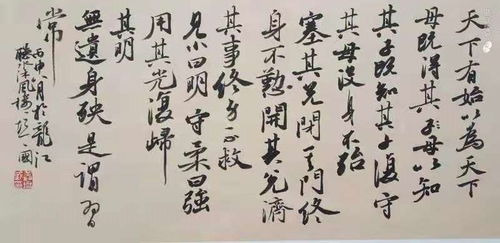 天下有始以為天下
母既得其母以知
其子既知其子復守
其母沒身不殆
塞其兑閉其門終
身不勤開其兑濟
其事終身不救
見小曰明守柔曰強
用其光復歸
其明
無遺身殃是謂習
常
丙申八月於龍江